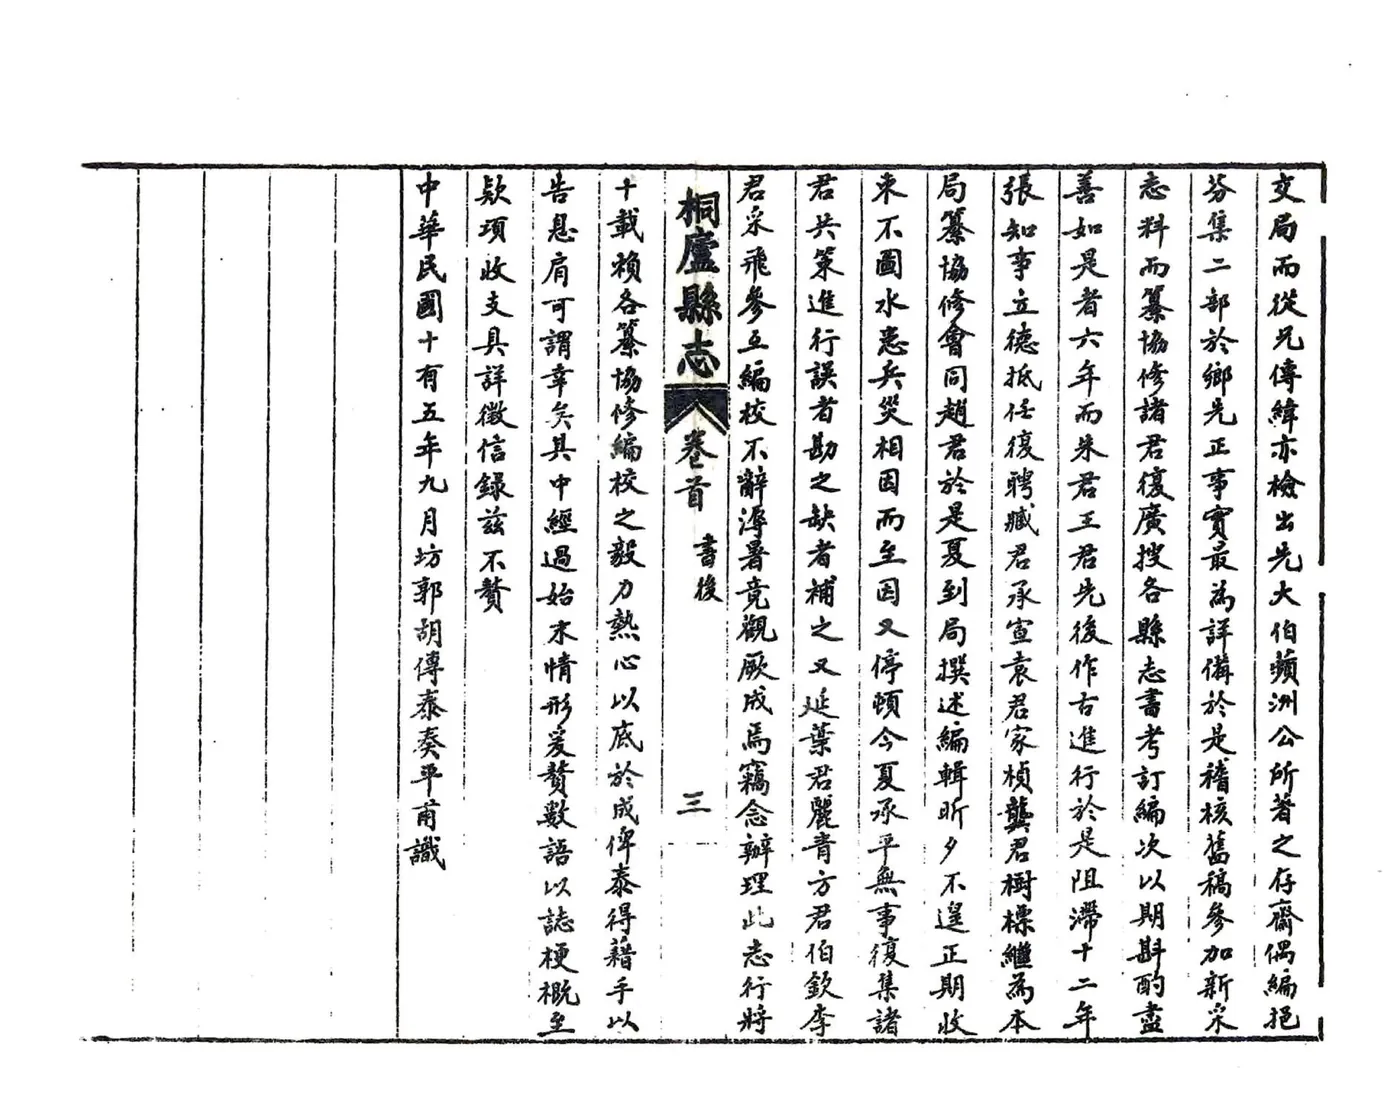 交局而從兄傳緯亦檢出先大伯蘋洲公所著之存齋偶編挹
芬集二部於鄉先正事實最為詳備於是稽核舊稿參加新采
志料而纂協修諸君復廣搜各縣志書考訂編次以期斟酌盡
善如是者六年而朱君王君先後作古進行於是阻滯十二年
張知事立德抵任復聘臧君承宣袁君家楨龔君樹標繼為本
局纂協修會同趙君於是夏到局撰述編輯昕夕不遑正期收
束不圖水患兵災相因而至因又停頓今夏承平無事復集諸
君共策進行誤者勘之缺者補之又延葉君麗青方君伯欽李
君采飛參互編校不辭溽暑竟觀厥成焉竊念辦理此志行將
桐廬縣志 卷首 書後 三
十載賴各纂協修編校之毅力熱心以底於成俾泰得藉手以
告息肩可謂幸矣其中經過始末情形爰贅數語以誌梗概至
欵項收支具詳徵信録茲不贅
中華民國十有五年九月坊郭胡傳泰奏平甫識